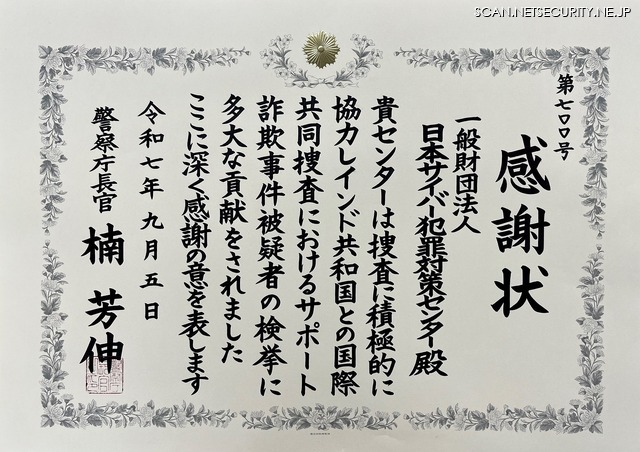 SCAN.NETSECURITY.NE.JP
第七〇〇号
感謝状
一般財団法人
日本サイバー犯罪対策センター殿
貴センターは捜査に積極的に
協力しインド共和国との国際
共同捜査におけるサポート
詐欺事件被疑者の検挙に
多大な貢献をされました
ここに深く感謝の意を表します
令和七年九月五日
警察庁長官
楠 芳伸